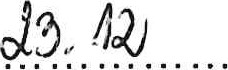 23. 12